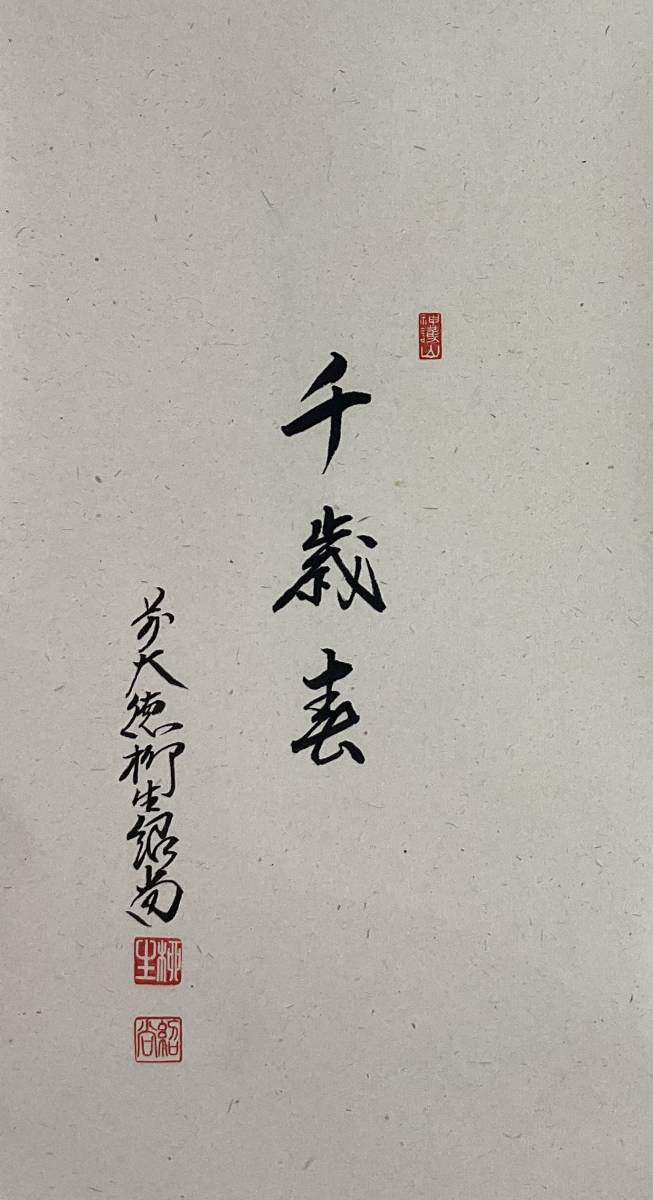 神護山
千歳春
前大徳柳生紹尚
柳生
紹尚